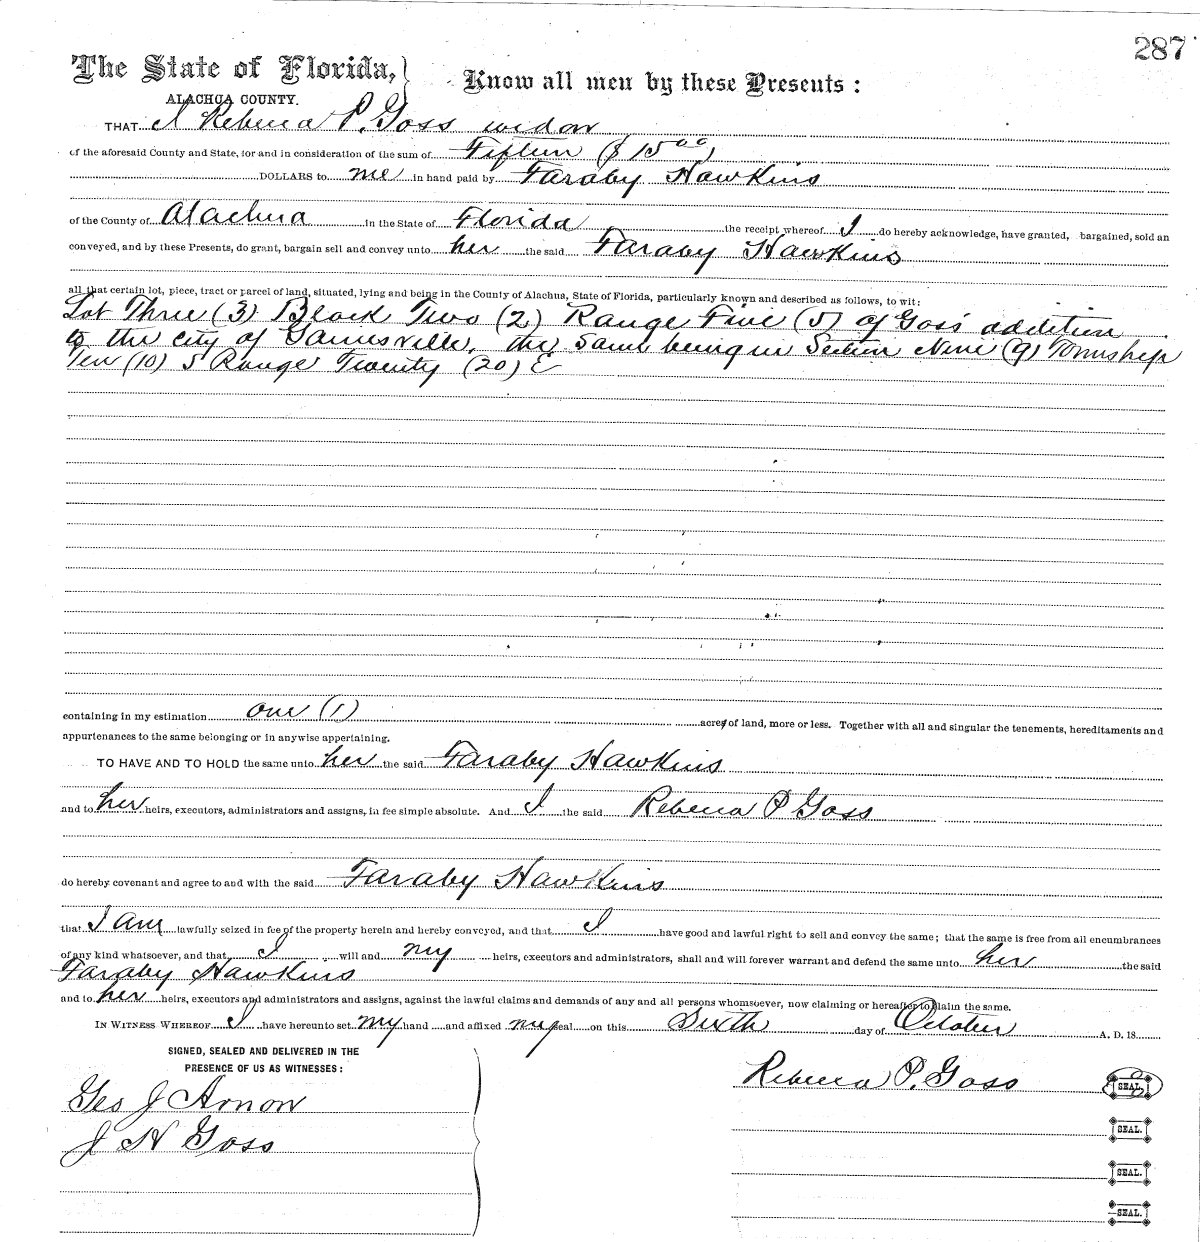 287
The State of Florida,
ALACHUA COUNTY.
Know all men by these Presents:
THAT I Rebecca P. Goss widow
of the aforesaid County and State, for and in consideration of the sum of Fifteen ($15 00)
DOLLARS to me in hand paid by Faraby Hawkins
of the County of Alachua in the State of Florida the receipt whereof I do hereby acknowledge, have granted, bargained, sold an
conveyed, and by these Presents, do grant, bargain sell and convey unto her the said Faraby Hawkins
all that certain lot, piece, tract or parcel of land, situated, lying and being in the County of Alachua, State of Florida, particularly known and described as follows, to wit:
Lot Three (3) Block Two (2) Range Five (5) of Goss' addition
to the city of Gainesville, the same being in Section Nine (9) Township
Ten (10) S Range Twenty (20) E
containing in my estimation one (1) acre of land, more or less. Together with all and singular the tenements, hereditaments and
appurtenances to the same belonging or in anywise appertaining.
TO HAVE AND TO HOLD the same unto her the said Faraby Hawkins
and to her heirs, executors, administrators and assigns, in fee simple absolute. And I the said Rebecca P Goss
do hereby covenant and agree to and with the said Faraby Hawkins
that I am lawfully seized in fee of the property herein and hereby conveyed, and that I have good and lawful right to sell and convey the same; that the same is free from all encumbrances
of any kind whatsoever, and that I will and my heirs, executors and administrators, shall and will forever warrant and defend the same unto her the said
Faraby Hawkins
and to her heirs, executors and administrators and assigns, against the lawful claims and demands of any and all persons whomsoever, now claiming or hereafter to claim the same.
IN WITNESS WHEREOF I have hereunto set my hand and affixed my seal on this Sixth day of October A. D. 18
SIGNED, SEALED AND DELIVERED IN THE
PRESENCE OF US AS WITNESSES:
Rebecca P. Goss SEAL.
Geo J Arnow
SEAL.
J H Goss
SEAL.
SEAL.